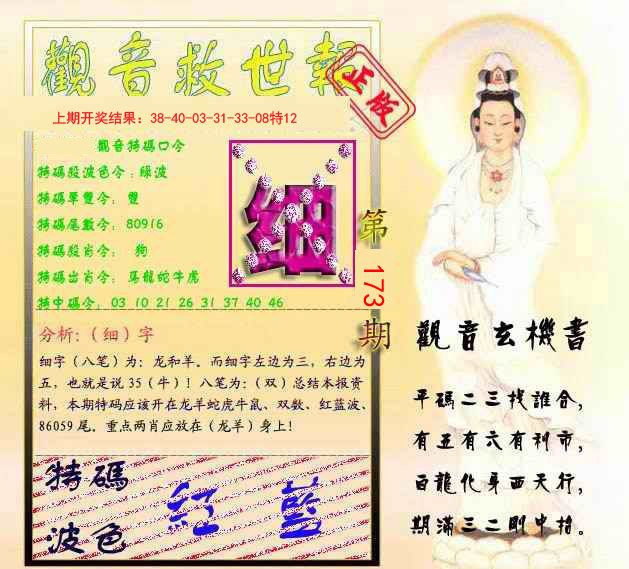 觀音救世報
正版
上期开奖结果：38-40-03-31-33-08特12
觀音特碼口令
特碼段波色令：綠波
特碼單雙令： 雙
特碼尾數令：80916
特碼段肖令： 狗
特碼出肖令：馬龍蛇牛虎
特中碼令：03 10 21 26 31 37 40 46
细
第
173
期
分析:（细）字
细字（八笔）为：龙和羊。而细字左边为三，右边为
五，也就是说 35（牛）！八笔为：（双）总结本报资
料，本期特码应该开在龙羊蛇虎牛鼠、双数、红蓝波、
86059 尾。重点两肖应放在（龙羊）身上！
特碼
波色
紅 藍
觀音玄機書
平碼二三找誰合，
有五有六有利市，
百龍化身西天行，
期滿三二剛中指。